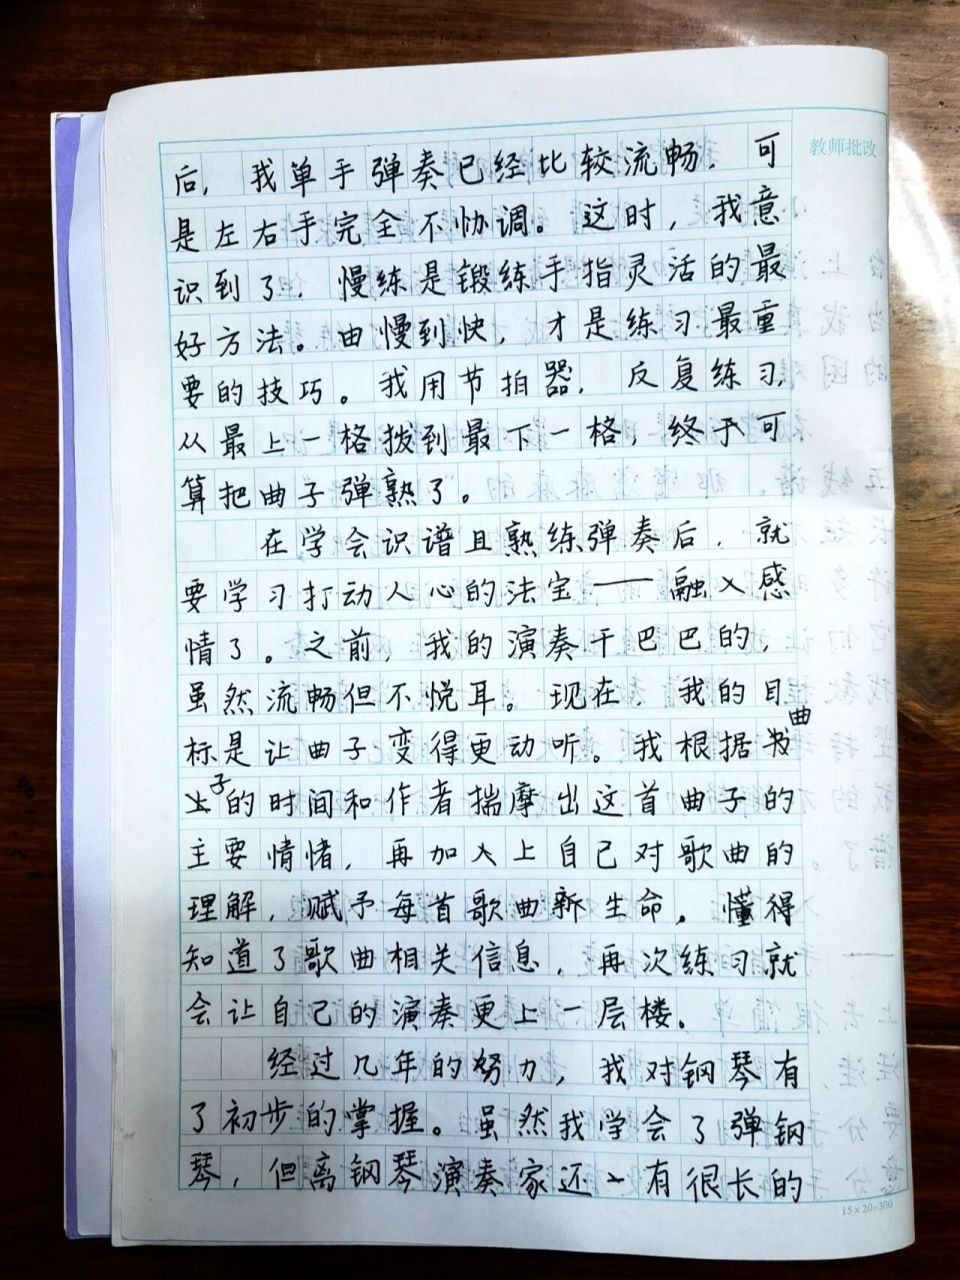 教师批改
后，我单手弹奏已经比较流畅，可
是左右手完全不协调。这时，我意
识到了，慢练是锻练手指灵活的最
好方法。由慢到快，才是练习最重
要的技巧。我用节拍器，反复练习，
从最上一格拨到最下一格，终于可
算把曲子弹熟了。
在学会识谱且熟练弹奏后，就
要学习打动人心的法宝——融入感
情了。之前，我的演奏干巴巴的，
虽然流畅但不悦耳。现在，我的目
标是让曲子变得更动听。我根据曲
子的时间和作者揣摩出这首曲子的
主要情绪，再加入上自己对歌曲的
理解，赋予每首歌曲新生命。懂得
知道了歌曲相关信息，再次练习就
会让自己的演奏更上一层楼。
经过几年的努力，我对钢琴有
了初步的掌握。虽然我学会了弹钢
琴，但离钢琴演奏家还有很长的
15×20=300